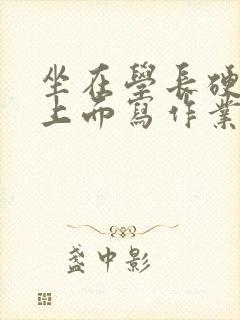 坐在學長硬
上而寫作業
盞中影